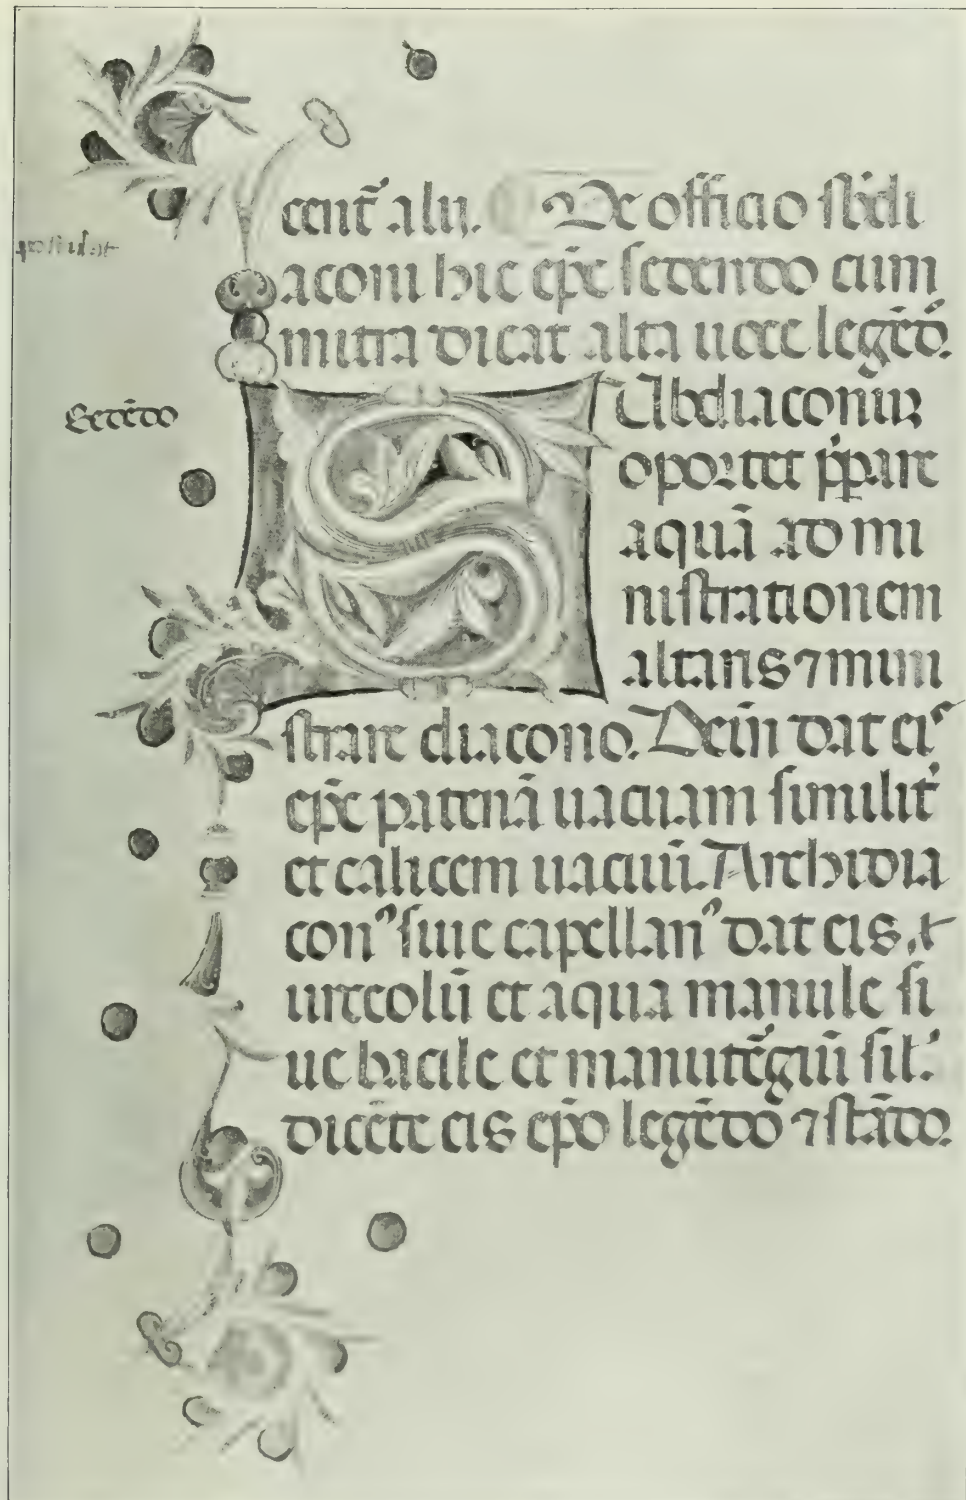 cent̃ alij. De officio sb̃di
aconi hic ep̃e sedendo cum
mitra dicat alta uoce legẽdo.
Sedẽdo
SUbdiaconuȝ
oportet p̃parare
aquã ad mi
nistrationem
altaris ⁊ mini
strare diacono. Dein̄ dat eis
ep̃e patenã uacuam similit̃
et calicem uacuũ. Archidia
con⁹ siue capellan⁹ dat eis
urceolũ et aqua manule si
ue bacile et manutẽgiũ sil̃.
dicẽte eis ep̃o legẽdo ⁊ stãdo.